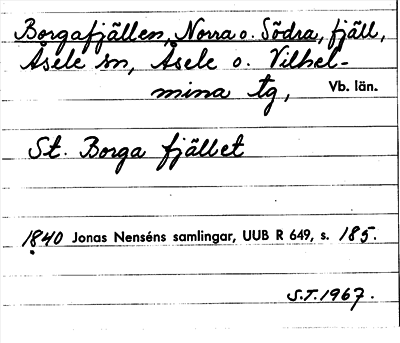 Borgafjällen, Norra o. Södra, fjäll,
Åsele sn, Åsele o. Vilhel-
mina tg, Vb. län.
St. Borga fjället
1840 Jonas Nenséns samlingar, UUB R 649, s. 185.
S.T. 1967.